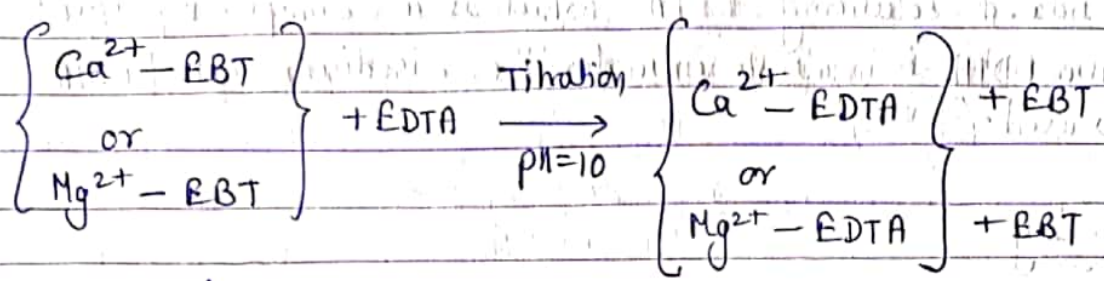 Ca²⁺ — EBT
or
Mg²⁺ — EBT
+ EDTA
Titration
pH=10
Ca²⁺ — EDTA
or
Mg²⁺ — EDTA
+ EBT
+ EBT